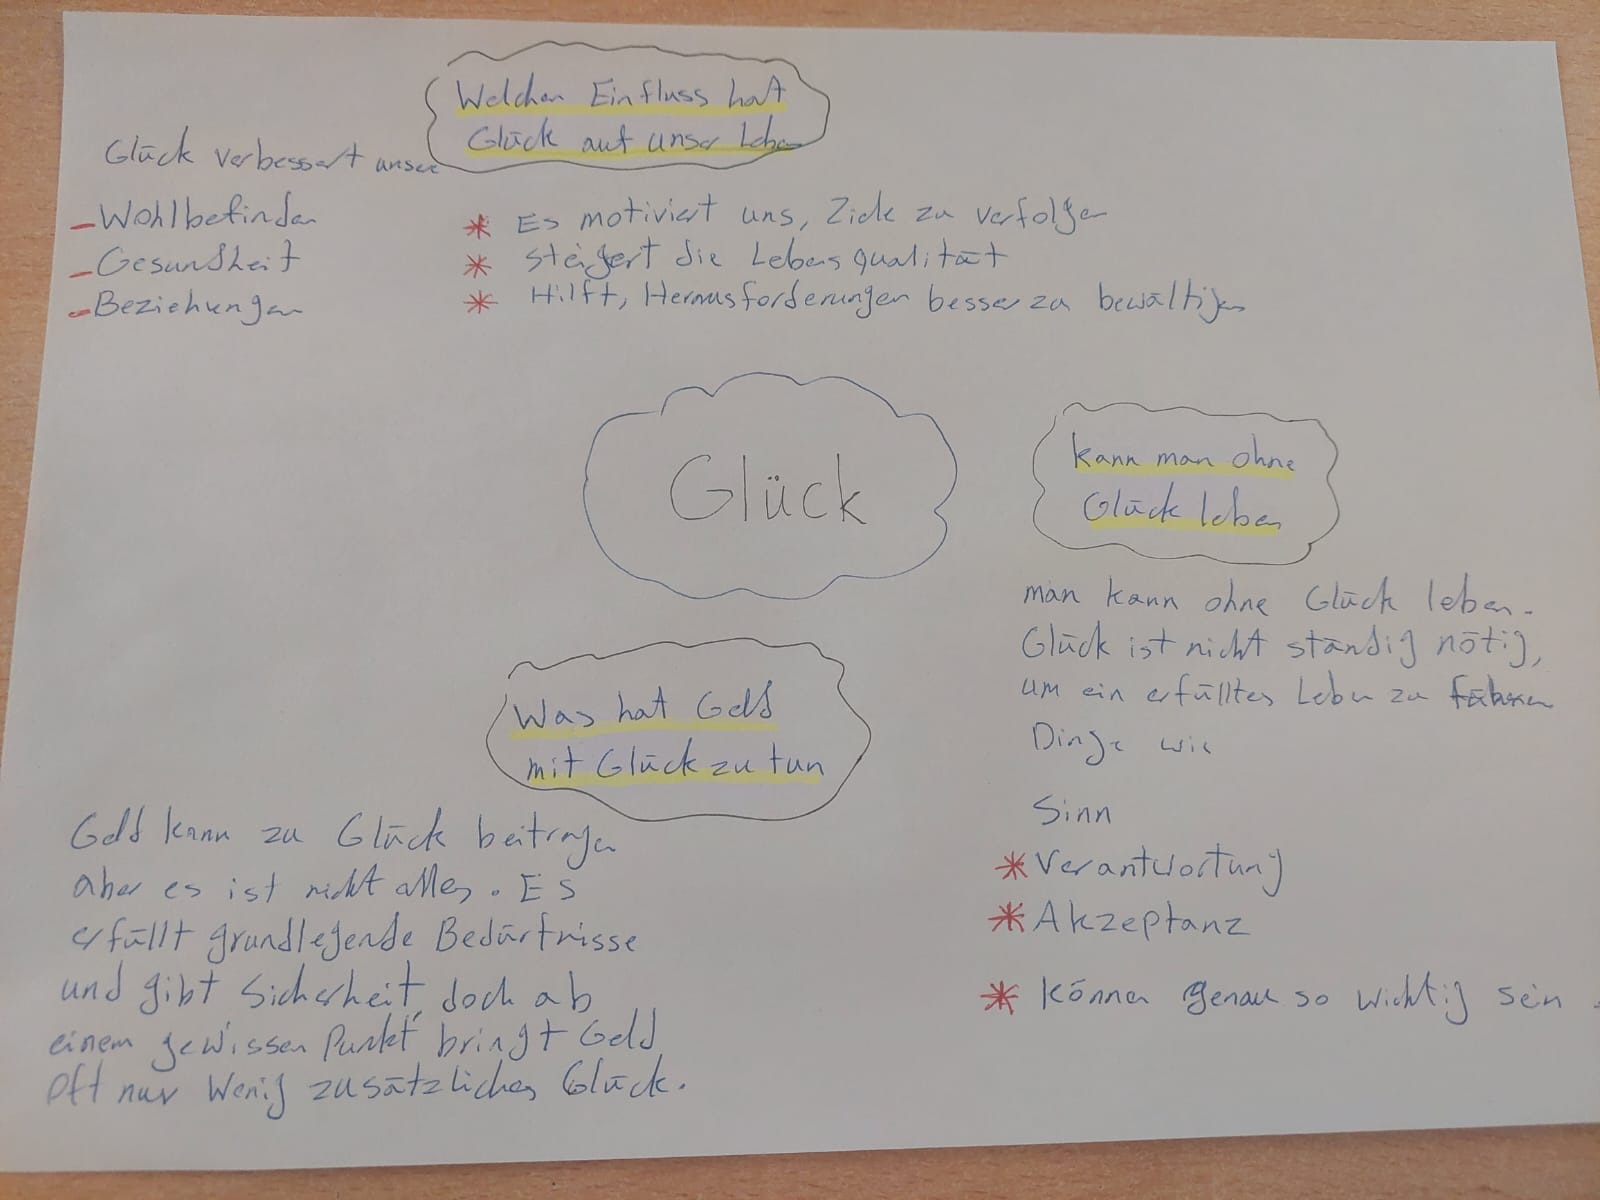 Welchen Einfluss hat
Glück auf unser Leben
Glück verbessert unsere
- Wohlbefinden
- Gesundheit
- Beziehungen
* Es motiviert uns, Ziele zu verfolgen
* steigert die Lebensqualität
* Hilft, Herausforderungen besser zu bewältigen
Glück
kann man ohne
Glück leben
man kann ohne Glück leben.
Glück ist nicht ständig nötig,
um ein erfülltes Leben zu führen
Dinge wie
Sinn
* Verantwortung
* Akzeptanz
* können genau so wichtig sein.
Was hat Geld
mit Glück zu tun
Geld kann zu Glück beitragen
aber es ist nicht alles. Es
erfüllt grundlegende Bedürfnisse
und gibt Sicherheit, doch ab
einem gewissen Punkt bringt Geld
oft nur wenig zusätzliches Glück.